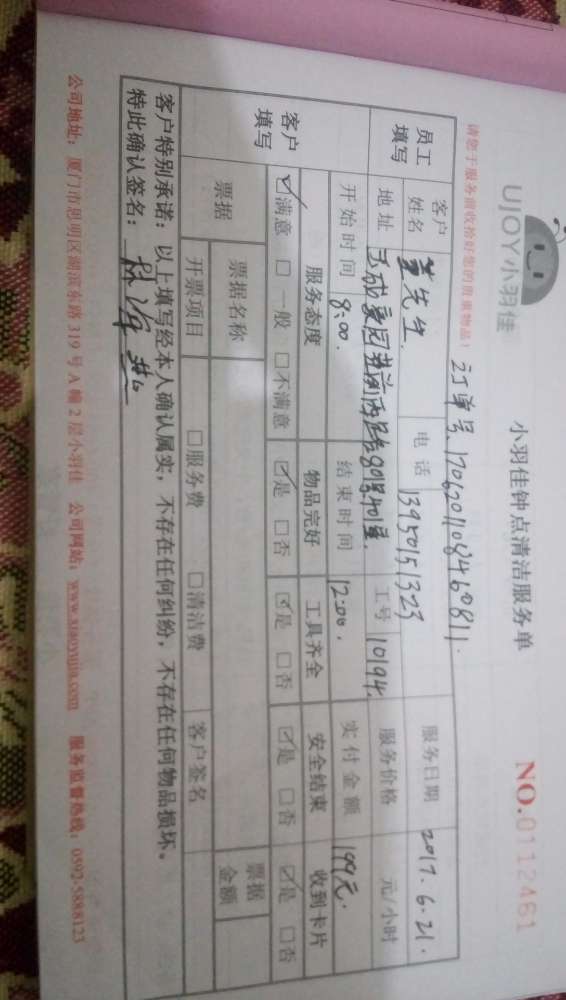 UJOY小羽佳
小羽佳钟点清洁服务单
NO.0112461
请您于服务前收拾好您的贵重物品!
订单号.17062011084460811.
员工填写
客户姓名
先生.
电话
13950151323
服务日期
2017.6.21.
地址
工号
10194.
服务价格
元/小时
开始时间
8:00.
结束时间
12:00.
实付金额
199元.
客户填写
服务态度
物品完好
工具齐全
安全结束
收到卡片
☑满意 □一般 □不满意
☑是 □否
☑是 □否
☑是 □否
☑是 □否
票据
票据名称
票据金额
开票项目
□服务费 □清洁费
客户签名
客户特别承诺: 以上填写经本人确认属实,不存在任何纠纷,不存在任何物品损坏。
特此确认签名:
公司地址:厦门市思明区湖滨东路319号A幢2层小羽佳 公司网站:www.xiaoyujia.com 服务监督热线:0592-5888123